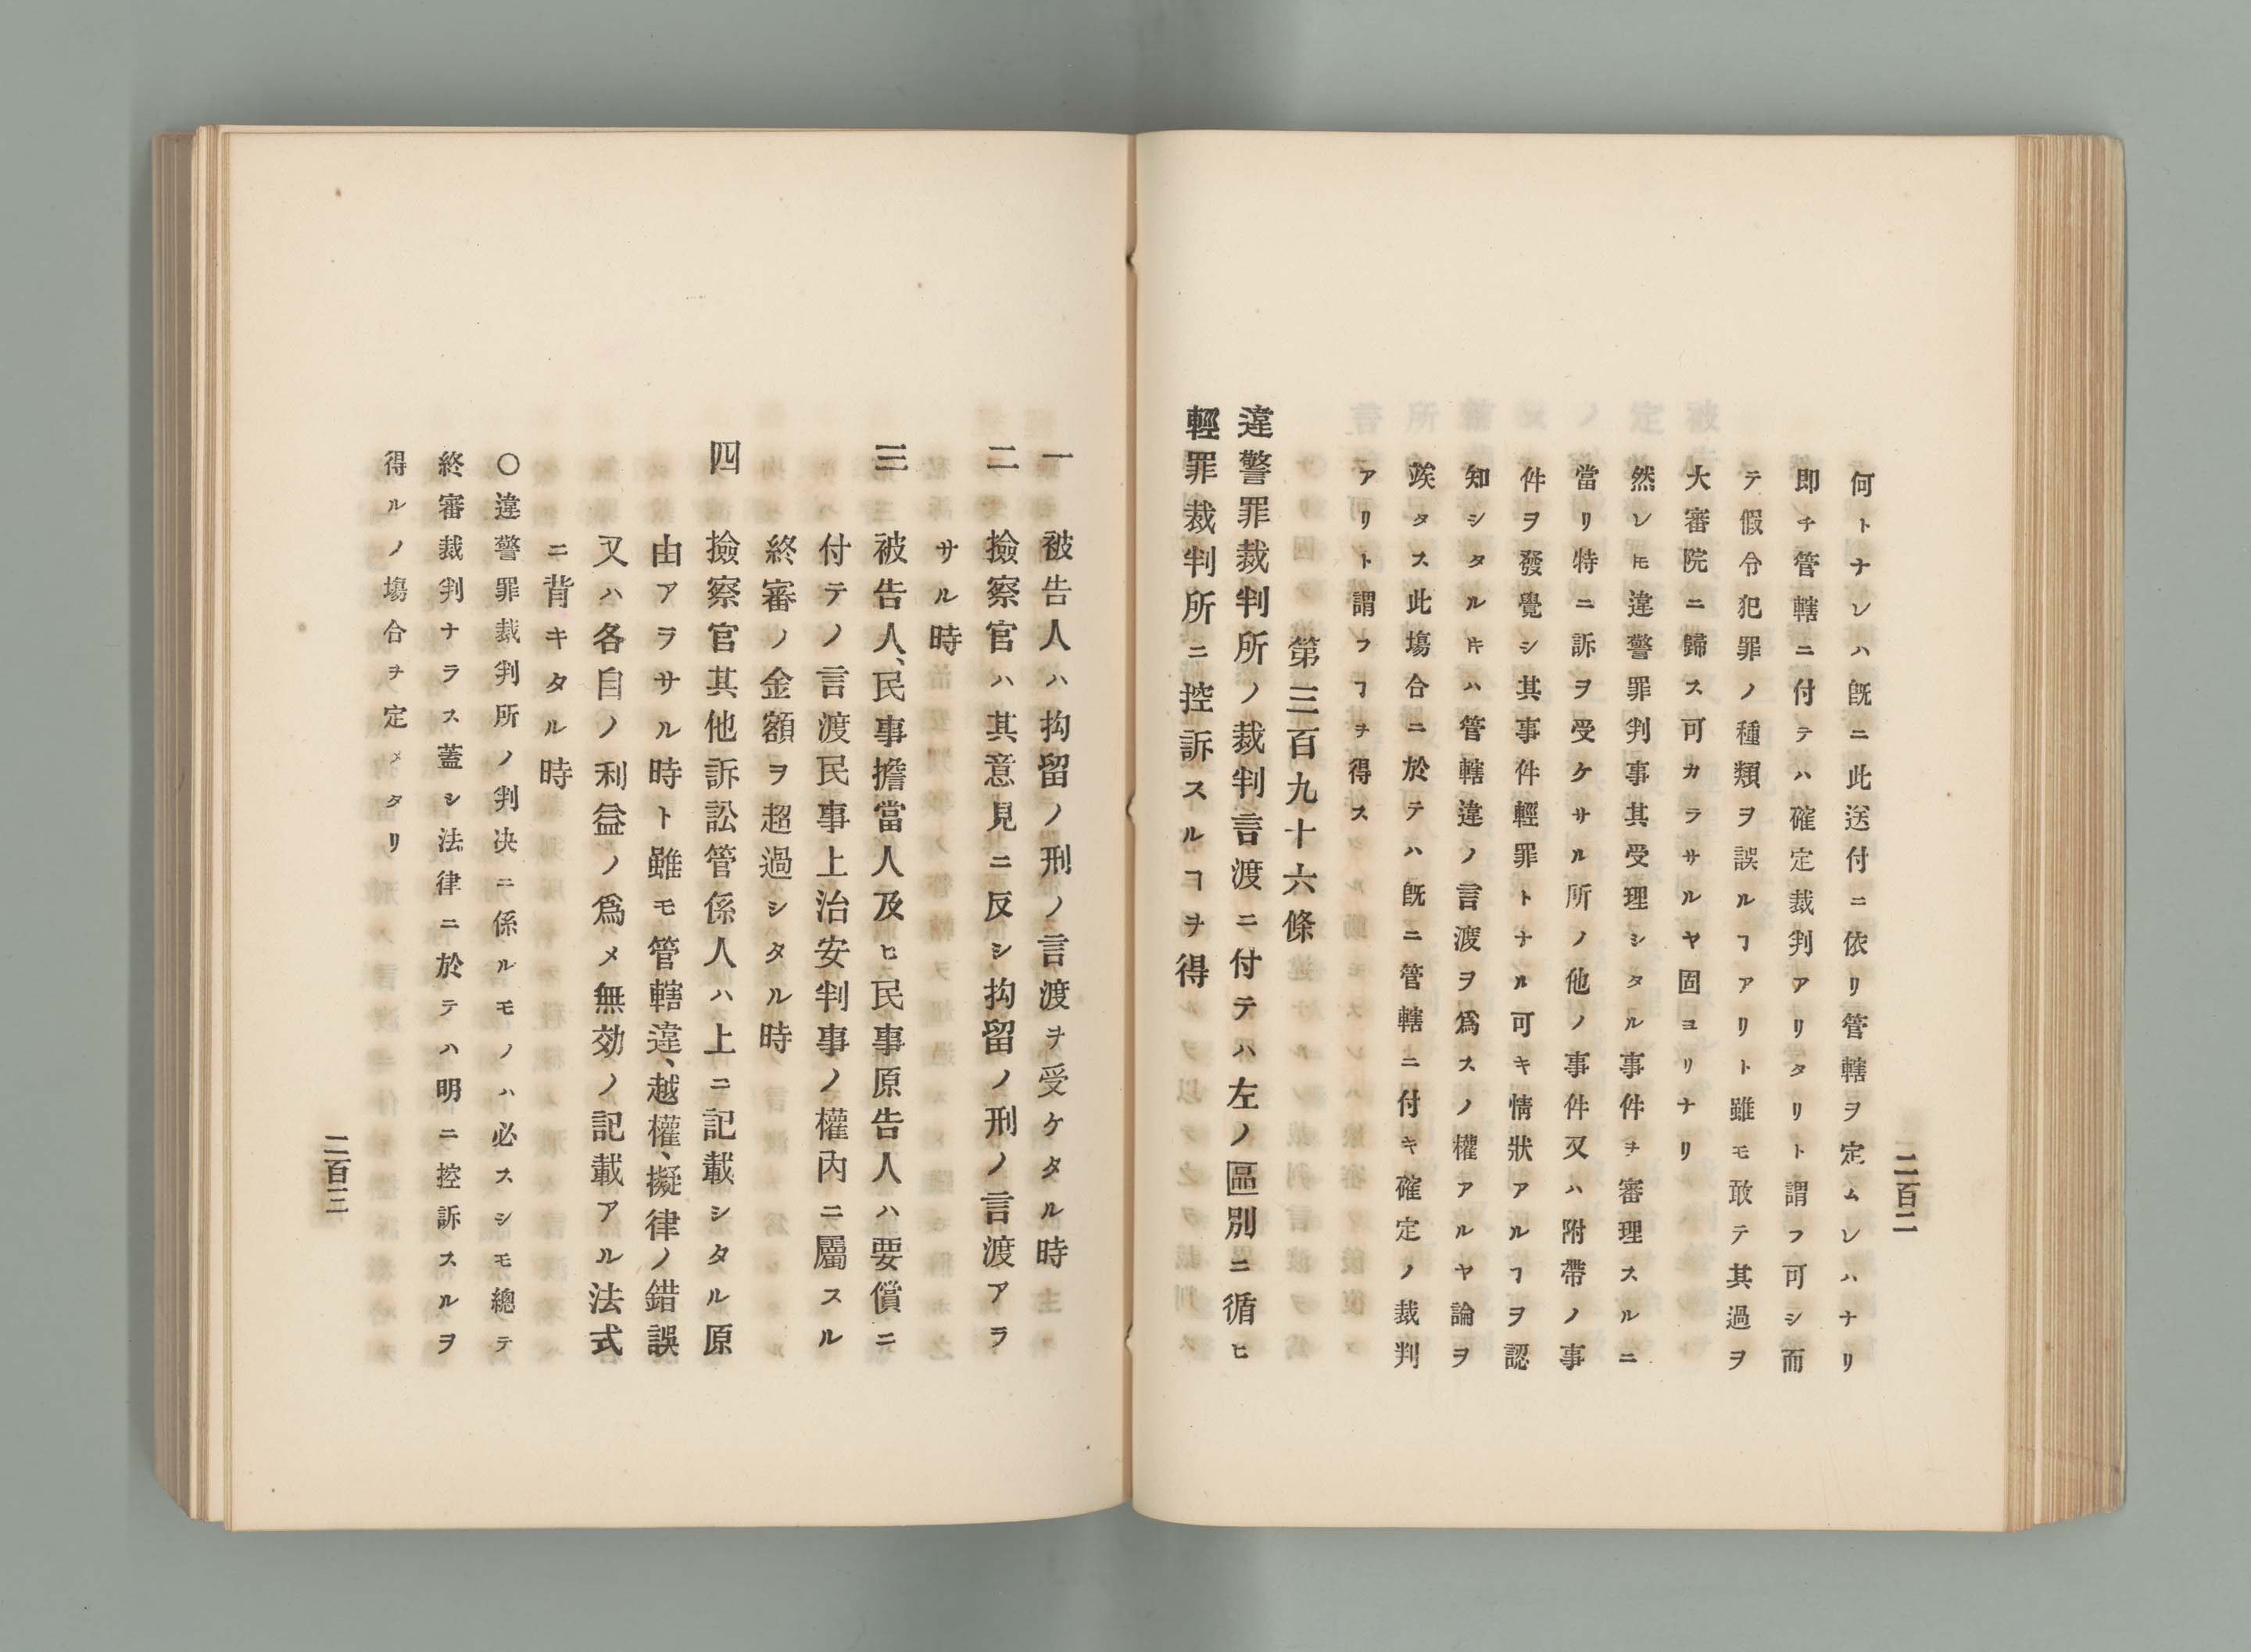 二百二
何トナレハ既ニ此送付ニ依リ管轄ヲ定ムレハナリ
即チ管轄ニ付テハ確定裁判アリタリト謂フ可シ而
テ假令犯罪ノ種類ヲ誤ルヿアリト雖モ敢テ其過ヲ
大審院ニ歸ス可カラサルヤ固ヨリナリ
然レ𪜈違警罪判事其受理シタル事件ヲ審理スルニ
當リ特ニ訴ヲ受ケサル所ノ他ノ事件又ハ附帶ノ事
件ヲ發覺シ其事件輕罪トナル可キ情狀アルヿヲ認
知シタルトキハ管轄違ノ言渡ヲ爲スノ權アルヤ論ヲ
竢タス此塲合ニ於テハ既ニ管轄ニ付キ確定ノ裁判
アリト謂フヿヲ得ス
第三百九十六條
違警罪裁判所ノ裁判言渡ニ付テハ左ノ區別ニ循ヒ
輕罪裁判所ニ控訴スルヿヲ得
一 被告人ハ拘留ノ刑ノ言渡ヲ受ケタル時
二 撿察官ハ其意見ニ反シ拘留ノ刑ノ言渡アラ
サル時
三 被告人、民事擔當人及ヒ民事原告人ハ要償ニ
付テノ言渡民事上治安判事ノ權內ニ屬スル
終審ノ金額ヲ超過シタル時
四 撿察官其他訴訟管係人ハ上ニ記載シタル原
由アヲサル時ト雖モ管轄違、越權、擬律ノ錯誤
又ハ各自ノ利益ノ爲メ無効ノ記載アル法式
ニ背キタル時
〇違警罪裁判所ノ判决ニ係ルモノハ必スシモ總テ
終審裁判ナラス蓋シ法律ニ於テハ明ニ控訴スルヲ
得ルノ塲合ヲ定メタリ
二百三